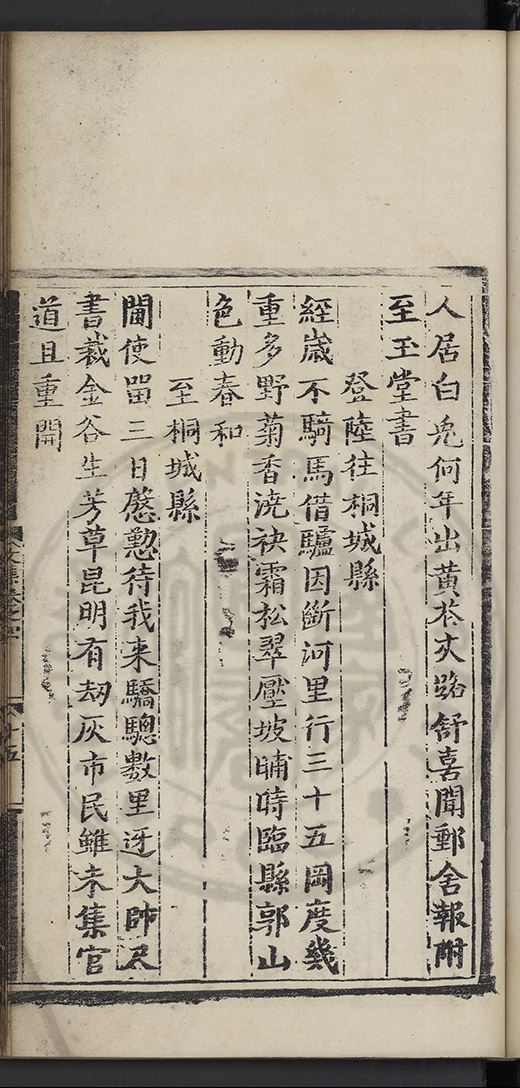 人居白兎何年出黄茬大路舒喜聞郵舍報附
至玉堂書
登陸往桐城縣
經歲不騎馬借驢因斷河里行三十五岡度幾
重多野菊香澆袂霜松翠壓坡晡時臨縣郭山
色動春和
至桐城縣
閫使畱三日慇懃待我来驕驄数里迓大帥尺
書裁金谷生芳草昆明有刼灰市民雖未集官
道且重開